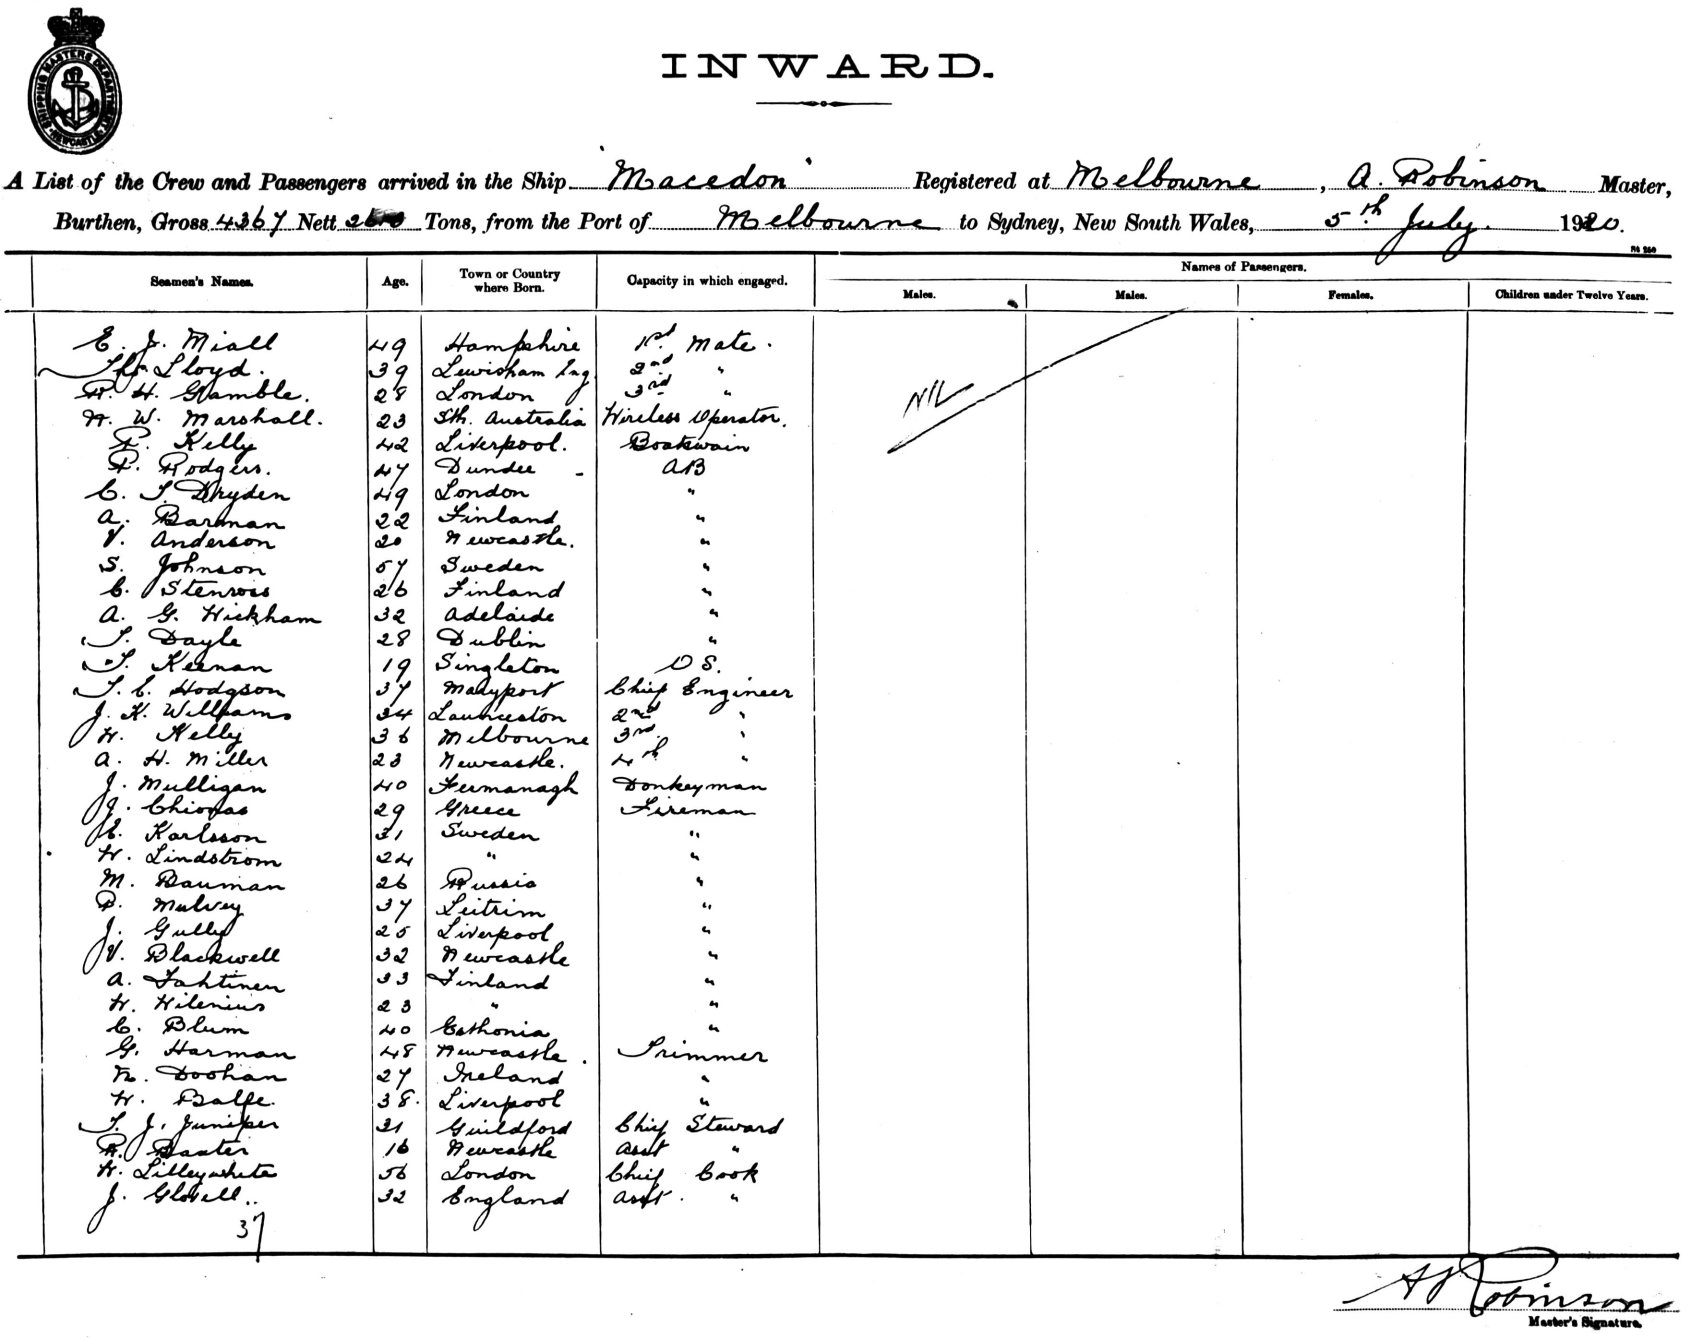 SHIPPING MASTERS DEPARTMENT NEWCASTLE
INWARD.
A List of the Crew and Passengers arrived in the Ship "Macedon" Registered at Melbourne, A. Robinson Master,
Burthen, Gross 4367 Nett Tons, from the Port of Melbourne to Sydney, New South Wales, 5th July. 1920.
Names of Passengers.
Seamen's Names. Age. Town or Country where Born. Capacity in which engaged. Males. Males. Females. Children under Twelve Years.
E. J. Miall 49 Hampshire 1st Mate.
Lloyd. 39 Lewisham Eng 2nd "
R. H. Gamble. 28 London 3rd "
NIL
H. W. Marshall. 23 Sth. Australia Wireless Operator.
P. Kelly 42 Liverpool. Boatswain
P. Rodgers. 47 Dundee - AB
C. T. Dryden 49 London "
A. Barman 22 Finland "
V. Anderson 20 Newcastle. "
S. Johnson 57 Sweden "
C. Stenross 26 Finland "
A. G. Wickham 32 Adelaide "
T. Dayle 28 Dublin "
T. Keenan 19 Singleton O S.
T. C. Hodgson 37 Maryport Chief Engineer
J. K. Williams 34 Launceston 2nd "
W. Kelly 36 Melbourne 3rd "
A. H. Miller 23 Newcastle. 4th "
J. Mulligan 40 Fermanagh Donkeyman
J. 29 Greece Fireman
E. Karlsson 31 Sweden "
W. Lindstrom 24 " "
M. Bauman 26 Russia "
P. Mulvey 37 Leitrim "
J. Gully 25 Liverpool "
V. Blackwell 32 Newcastle "
A. 33 Finland "
W. Wilenius 23 " "
C. Blum 40 Esthonia "
G. Harman 48 Newcastle. Trimmer
Doohan 27 Ireland "
W. Balfe. 38. Liverpool "
T. J. Juniper 31 Guildford Chief Steward
R. Baxter 16 Newcastle Asst "
W. Lilleywhite 56 London Chief Cook
J. 32 England Asst. "
37
A Robinson
Master's Signature.